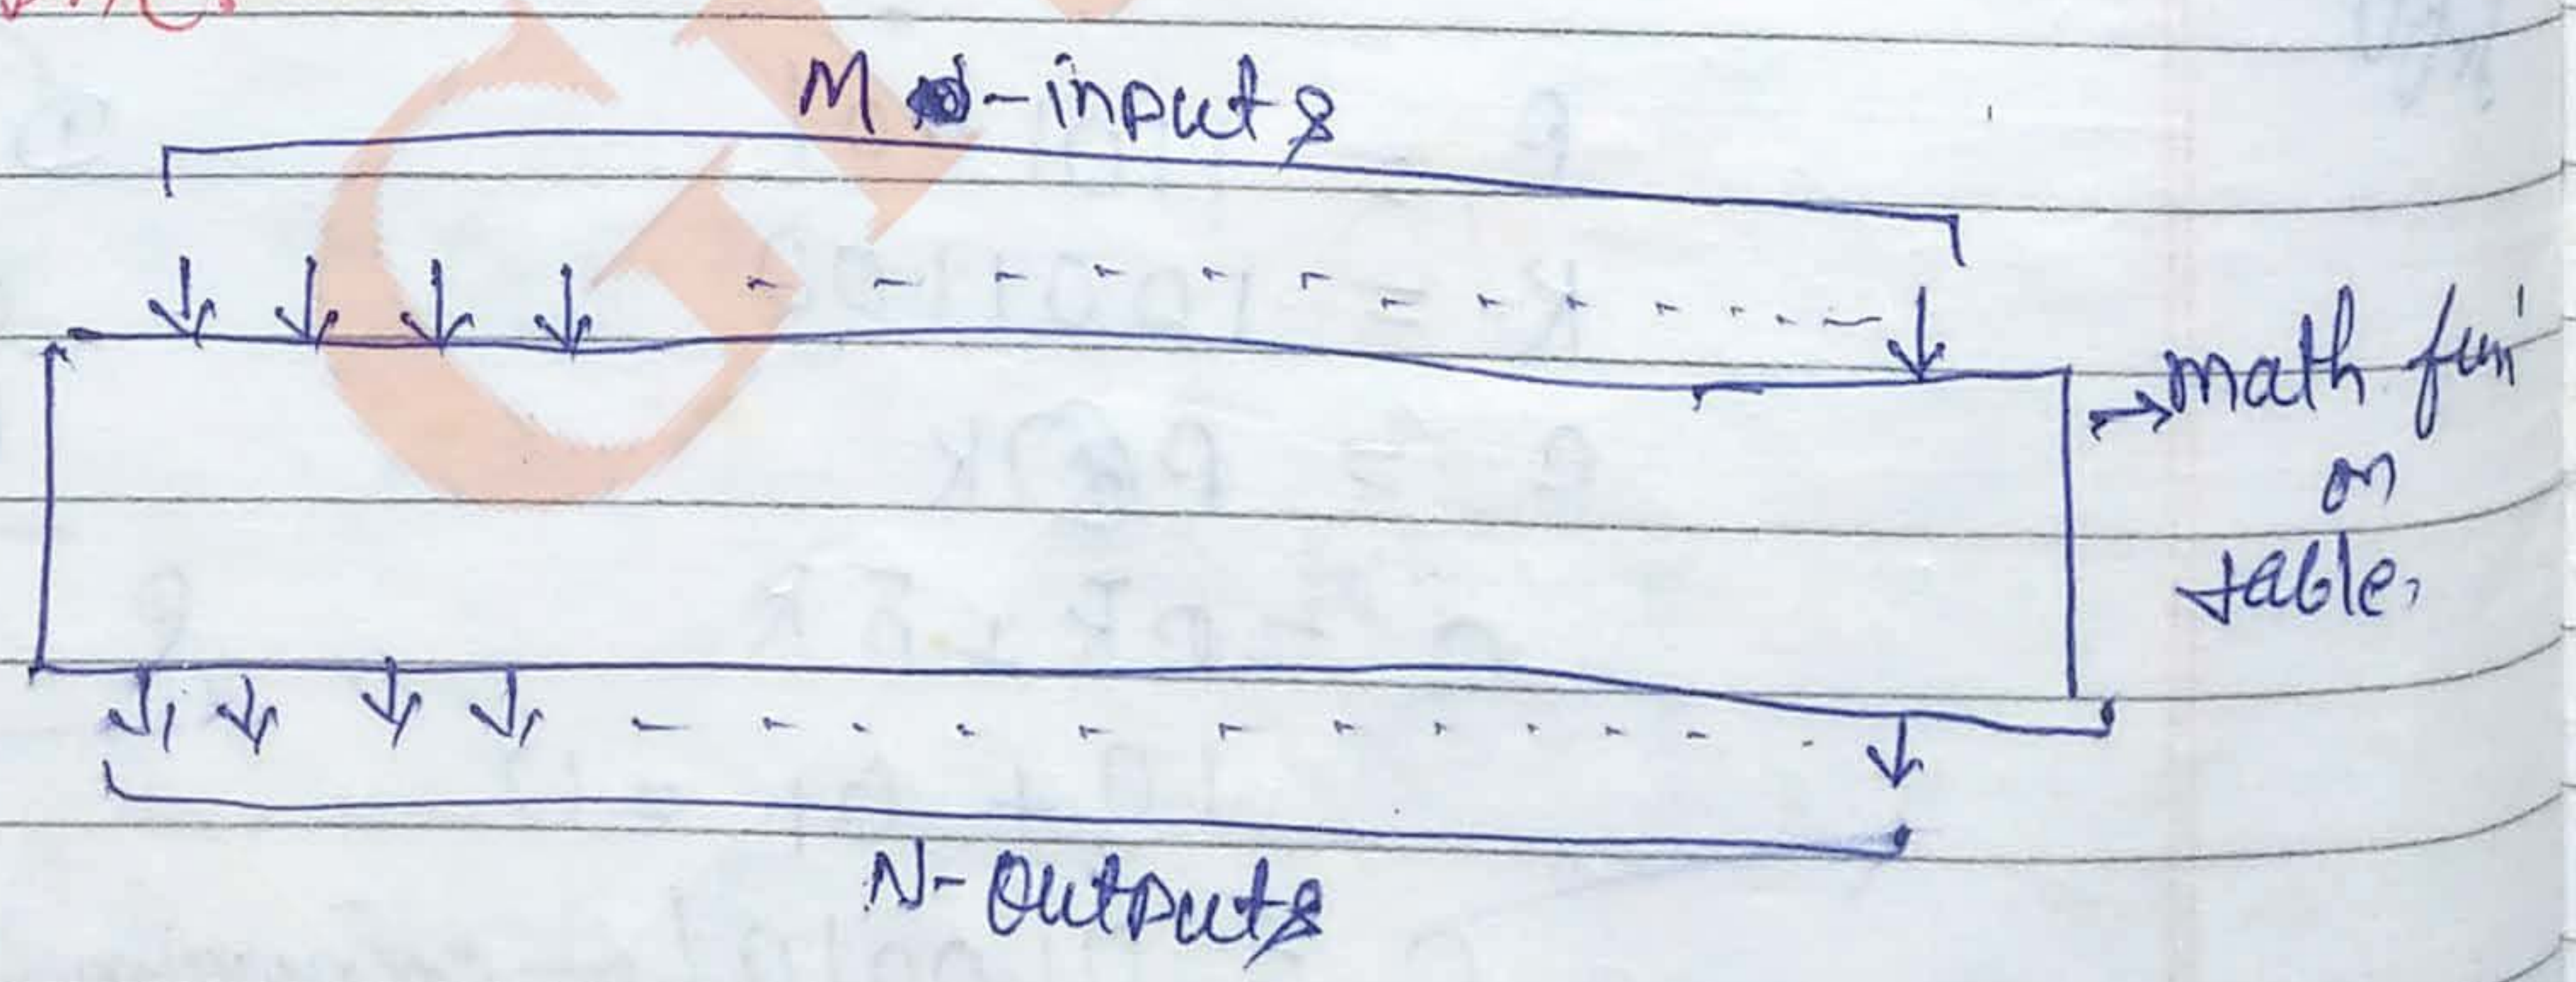 M -inputs
→ math fun'
or
table.
N-Outputs